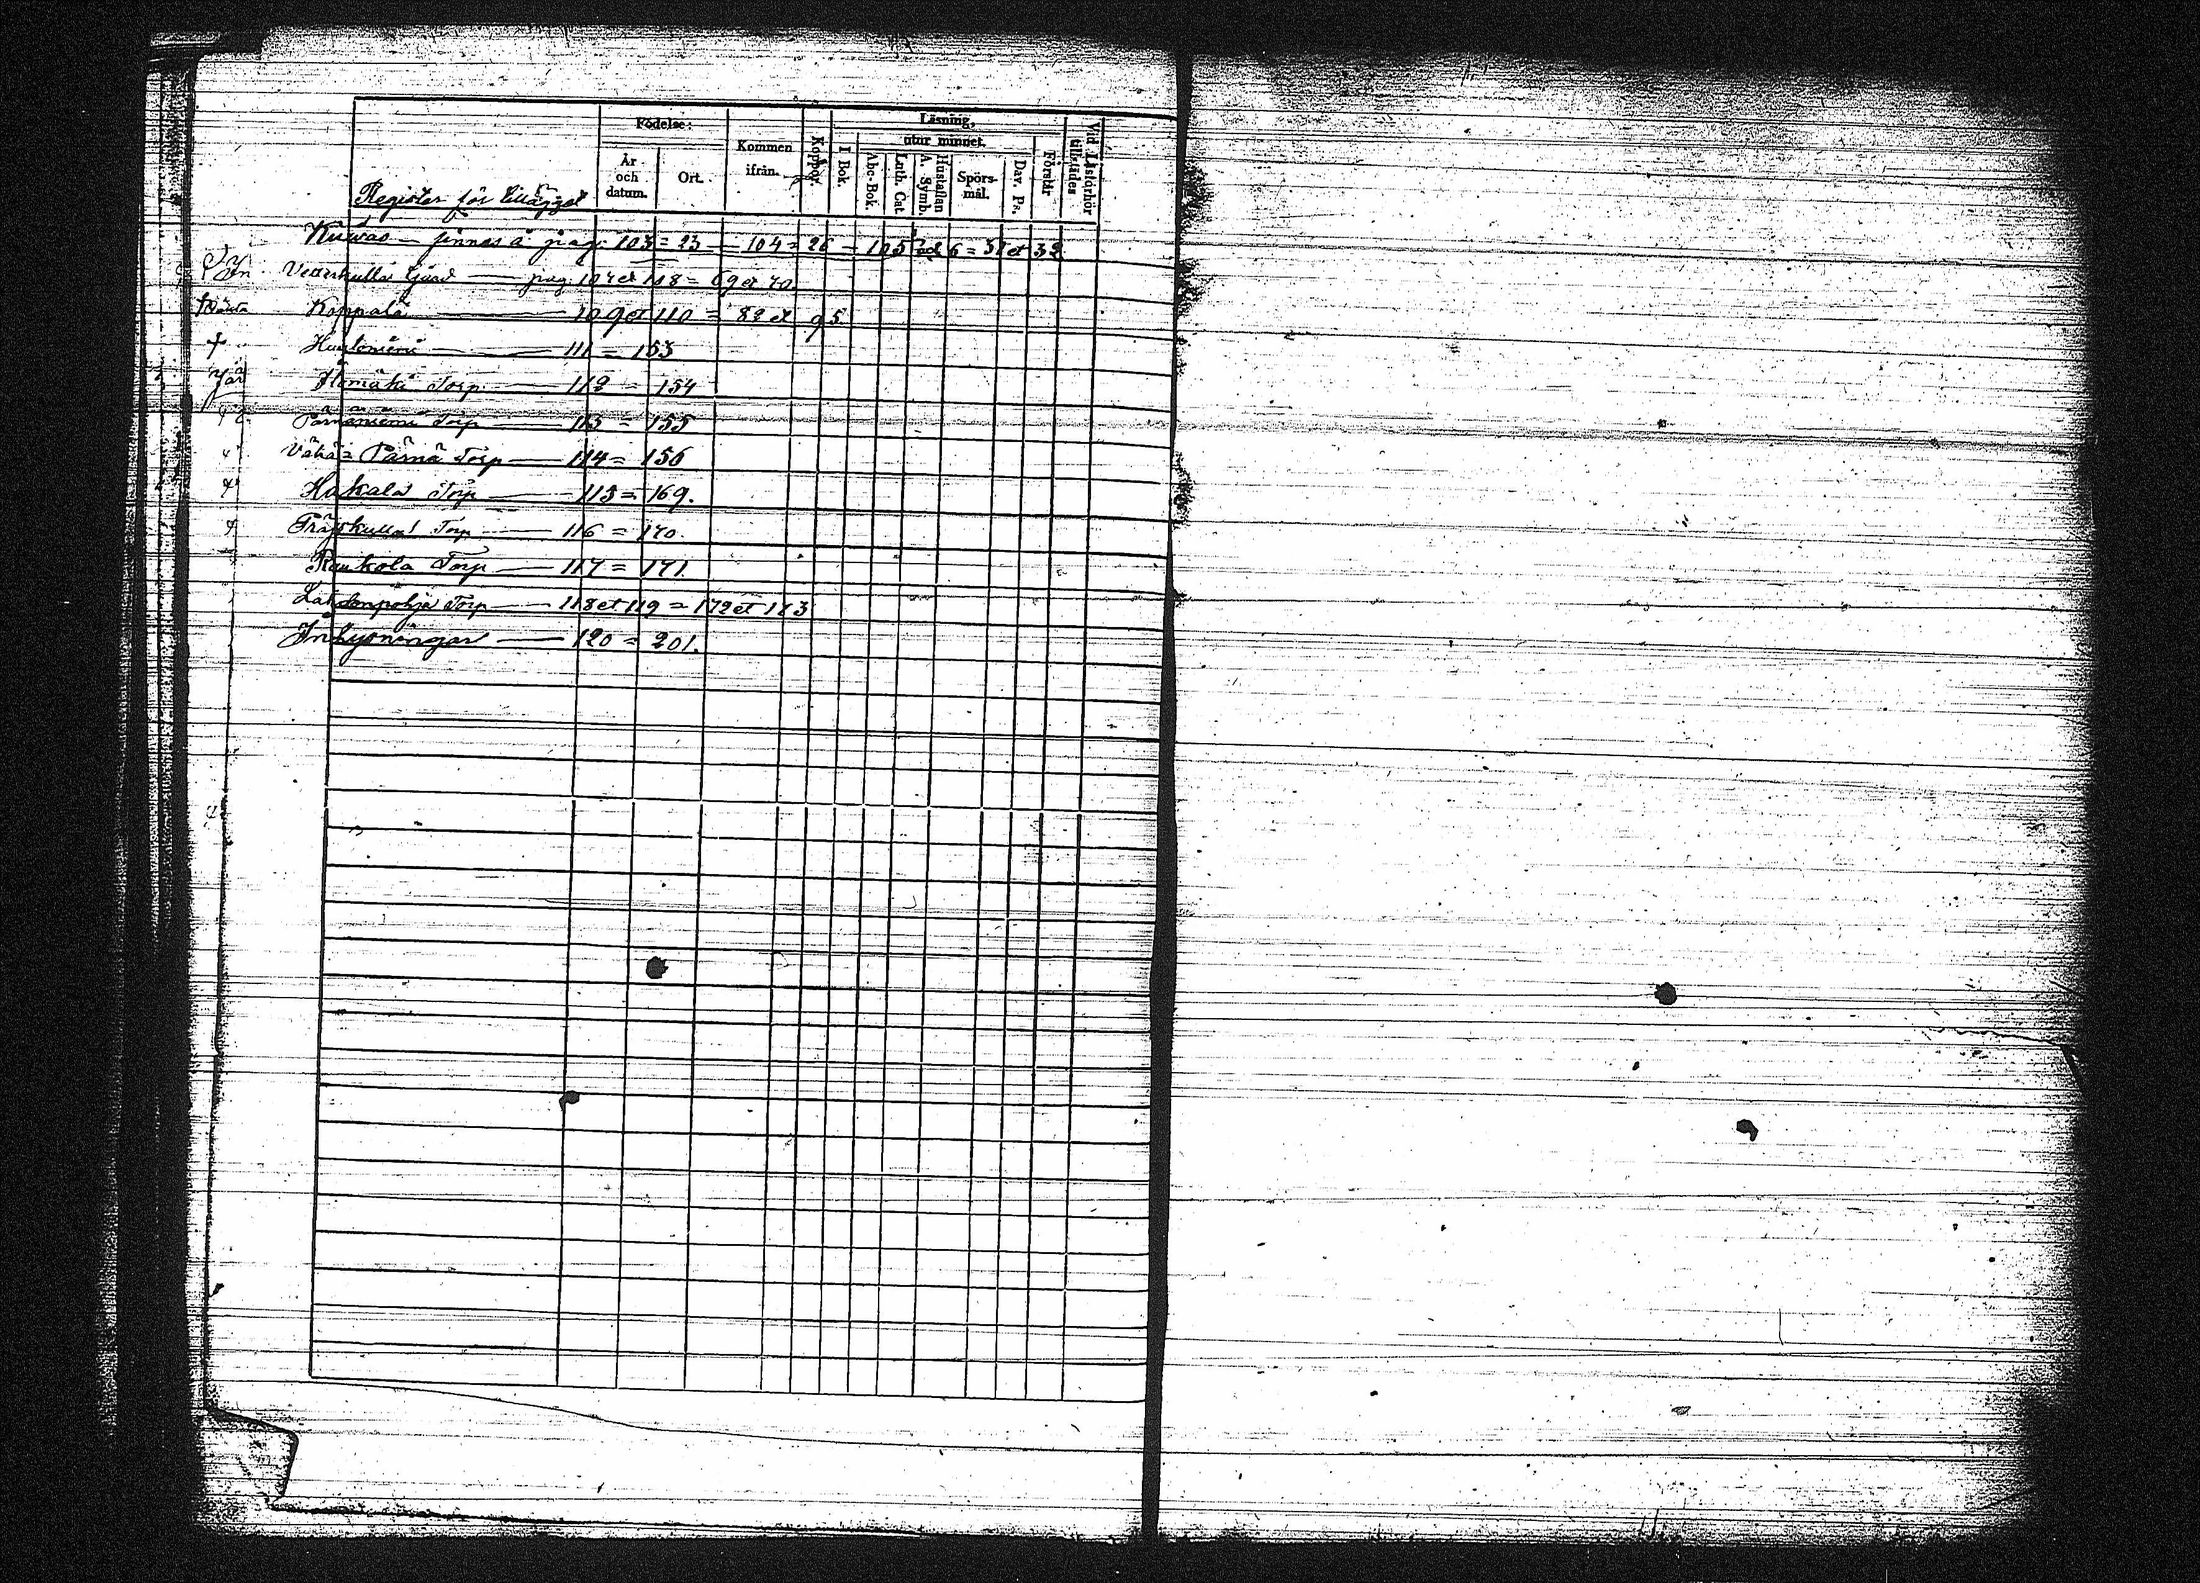 Födelse:
Läsning,
utur minnet.
År och datum.
Ort.
Kommen ifrån.
Koppor.
I Bok.
Abc-Bok.
Luth. Cat.
Hustaflan A. Symb.
Spörs-mål.
Dav. Ps.
Förstår
Vid Läsförhör tillstädes
Register för Tillägget
finnes å pag. 103 = 23 — 104 = 26 — 105 et 6 = 31 et 32
Vetterkulla Gård — pag. 107 et 108 = 69 et 70
Koppala — 109 et 110 = 82 et 95.
Huutoniemi — 111 = 153
Torp — 112 = 154
Pärnäniemi Torp — 113 = 155
Vähä = Pärnä Torp — 114 = 156
Hakala Torp — 115 = 169.
Träskkulla Torp — 116 = 170.
Raukola Torp — 117 = 171
Lahdenpohja Torp — 118 et 119 = 172 et 173
Inhysningar — 120 = 201.